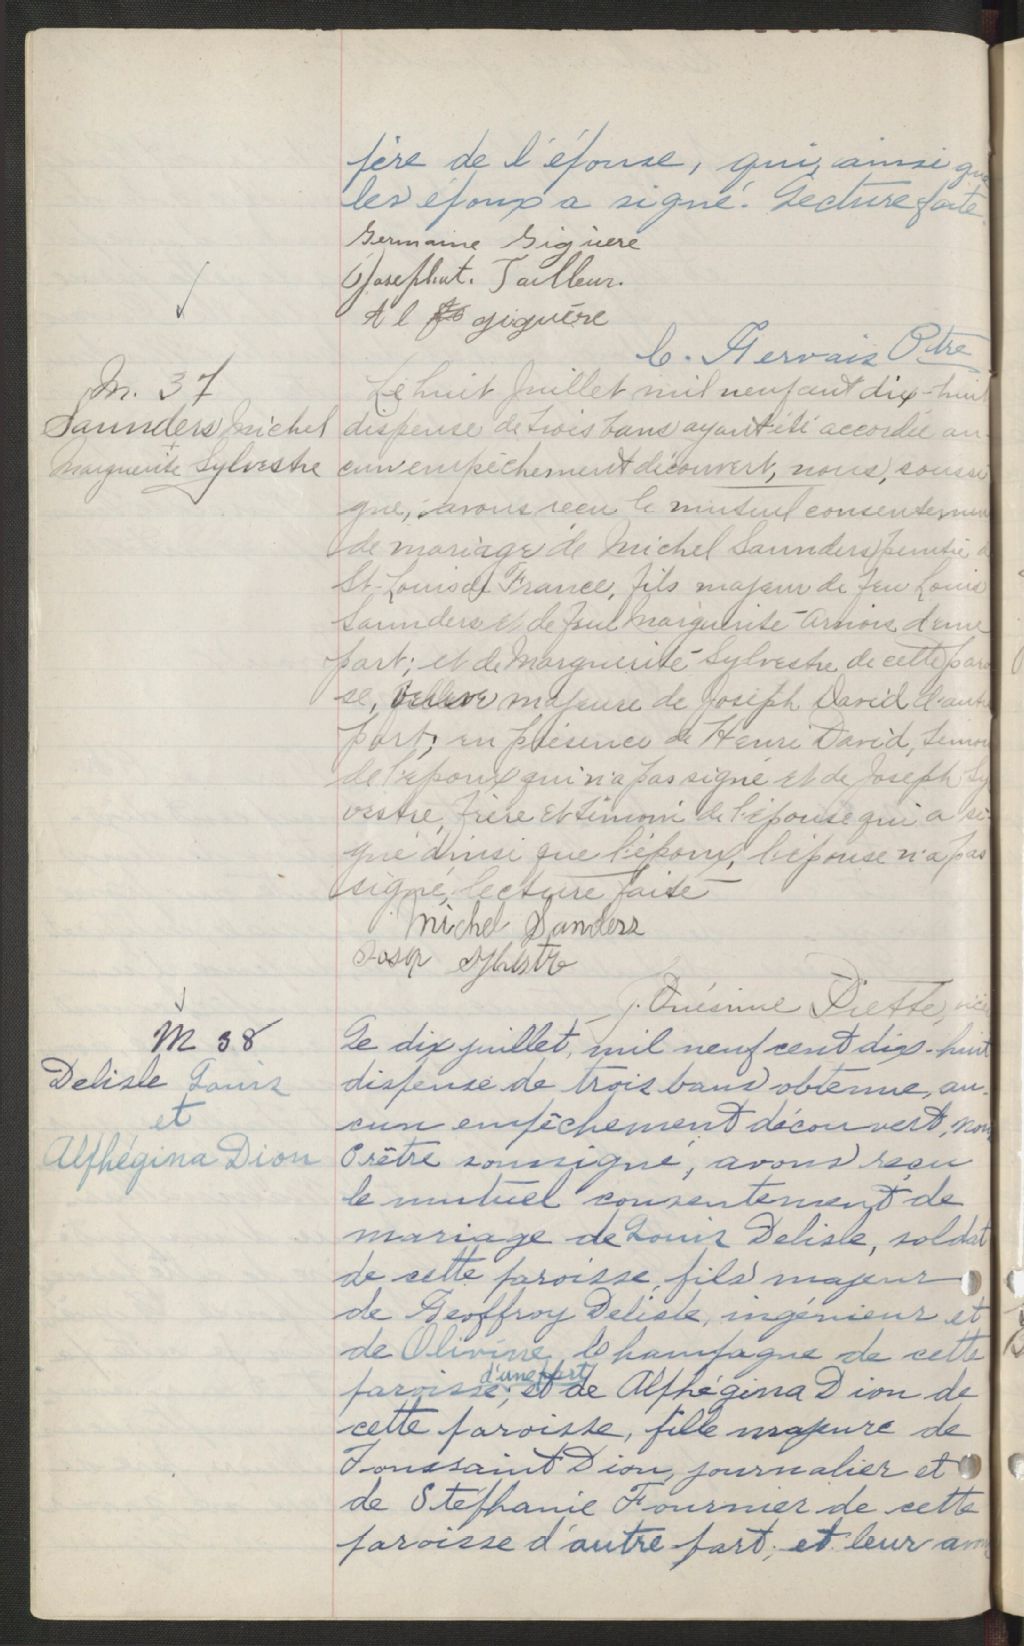 père de l'épouse, qui, ainsi que
les époux a signé. Lecture faite.
Germaine Giguere
Josephat. Tailleur.
A l giguére
C. Gervais Ptre
M. 37
Saunders Michel
+
Marguerite Sylvestre
Le huit Juillet mil neuf cent dix-huit
dispense de trois bans ayant été accordée au
cun empêchement découvert, nous, soussi
gné, avons reçu le mutuel consentement
de mariage de Michel Saunders, peintre
St-Louis de France, fils majeur de feu Louis
Saunders et de feue Marguerite d'une
part; et de Marguerite Sylvestre de cette parois
se, veuve majeure de Joseph David d'autre
part; en présence de Henri David, témoin
de l'époux qui n'a pas signé et de Joseph Syl
vestre, frère et témoin de l'épouse qui a si
gné ainsi que l'époux, l'épouse n'a pas
signé, lecture faite
Michel Sanders
Josep Sylvestre
J. Onésime Piette, vic
M 38
Delisle Louis
et
Alphégina Dion
Le dix juillet, mil neuf cent dix-huit
dispense de trois bans obtenue, au-
cun empêchement découvert, nous
Prêtre soussigné, avons reçu
le mutuel consentement de
mariage de Louis Delisle, soldat
de cette paroisse, fils majeur
de Geoffroy Delisle, ingénieur et
de Olivine Champagne de cette
d'une part
paroisse; et de Alphégina Dion de
cette paroisse, fille majeure de
Toussaint Dion, journalier et
de Stéphanie Fournier de cette
paroisse d'autre part; et leur avons